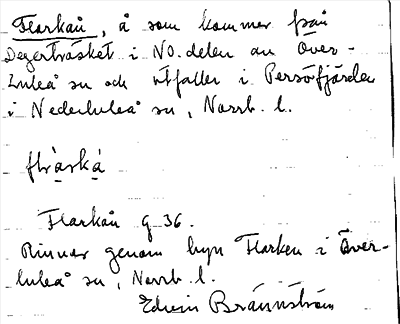 Flarkån, å som kommer från
Degerträsket i NO. delen av Över-
luleå sn och utfaller i Persöfjärden
i Nederluleå sn, Norrb. l.
Flarkån G 36.
Rinner genom byn Flarken i Över-
luleå sn, Norrb. l.
Edvin Brännström